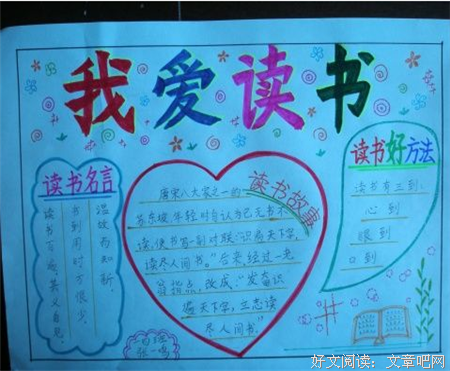 我爱读书
读书名言
温故而知新。
书到用时方恨少
读书百遍,其义自见。
读书故事
唐宋八大家之一的
苏东坡,年轻时自认为已无书不
读,便书写一副对联:“识遍天下字,
读尽人间书。”后来经过一老
翁指点,改成:“发奋识
遍天下字,立志读
尽人间书。”
读书好方法
读书有三到:
心到
眼到
口到
好文阅读:文章吧网